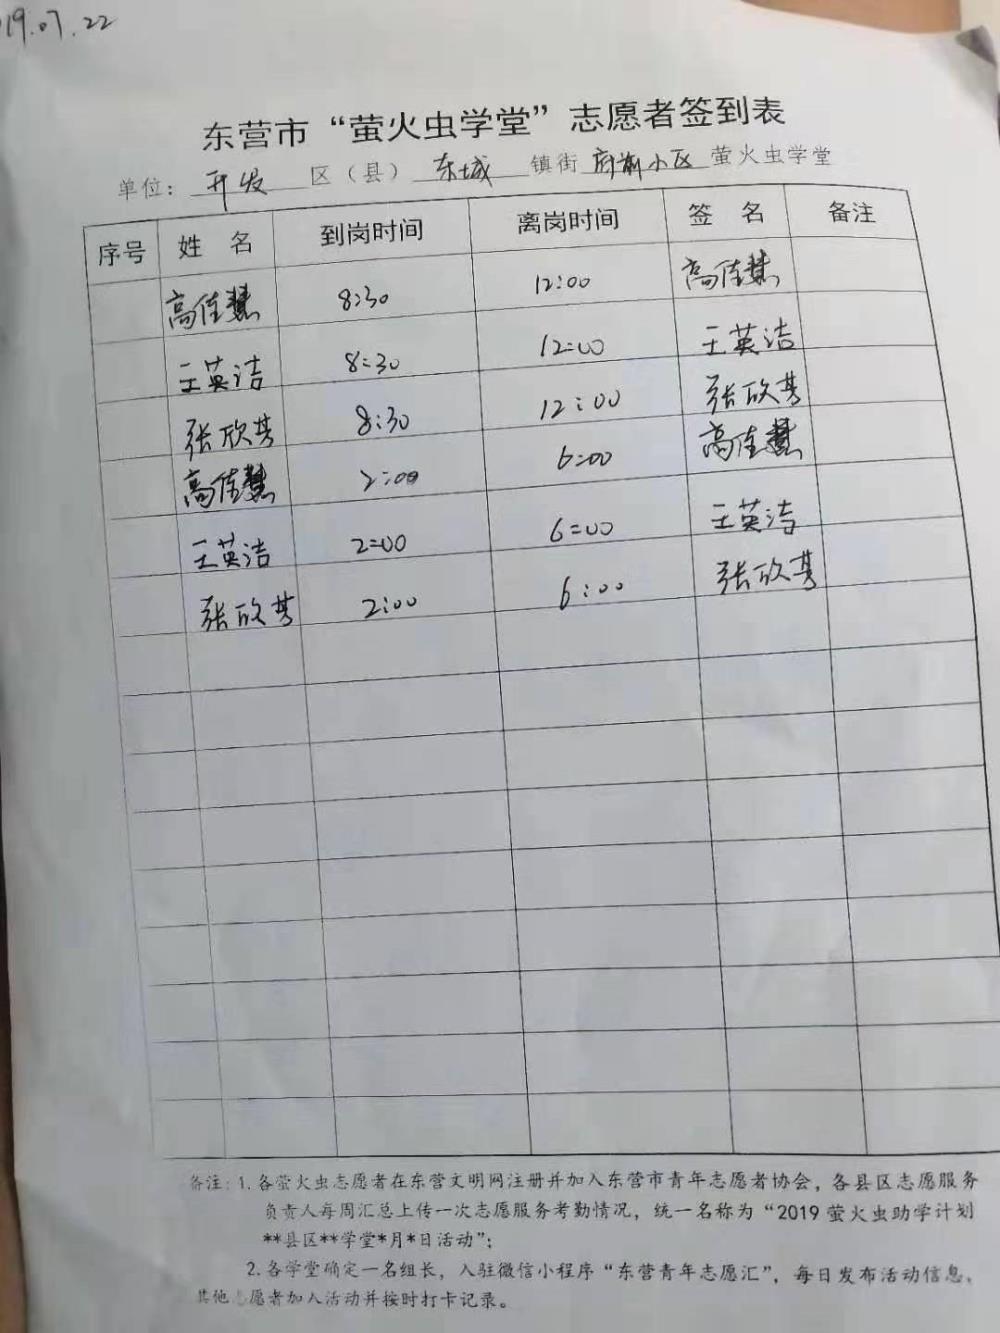 19.07.22
东营市“萤火虫学堂”志愿者签到表
单位: 开发 区（县） 东城 镇街 府前小区 萤火虫学堂
序号 姓 名 到岗时间 离岗时间 签 名 备注
高佳慧 8:30 12:00 高佳慧
王英洁 8:30 12:00 王英洁
张欣 8:30 12:00 张欣
高佳慧 2:00 6:00 高佳慧
王英洁 2:00 6:00 王英洁
张欣 2:00 6:00 张欣
备注: 1.各萤火虫志愿者在东营文明网注册并加入东营市青年志愿者协会，各县区志愿服务
负责人每周汇总上传一次志愿服务考勤情况，统一名称为“2019萤火虫助学计划
**县区**学堂*月*日活动”；
2.各学堂确定一名组长，入驻微信小程序“东营青年志愿汇”，每日发布活动信息，
其他志愿者加入活动并按时打卡记录。